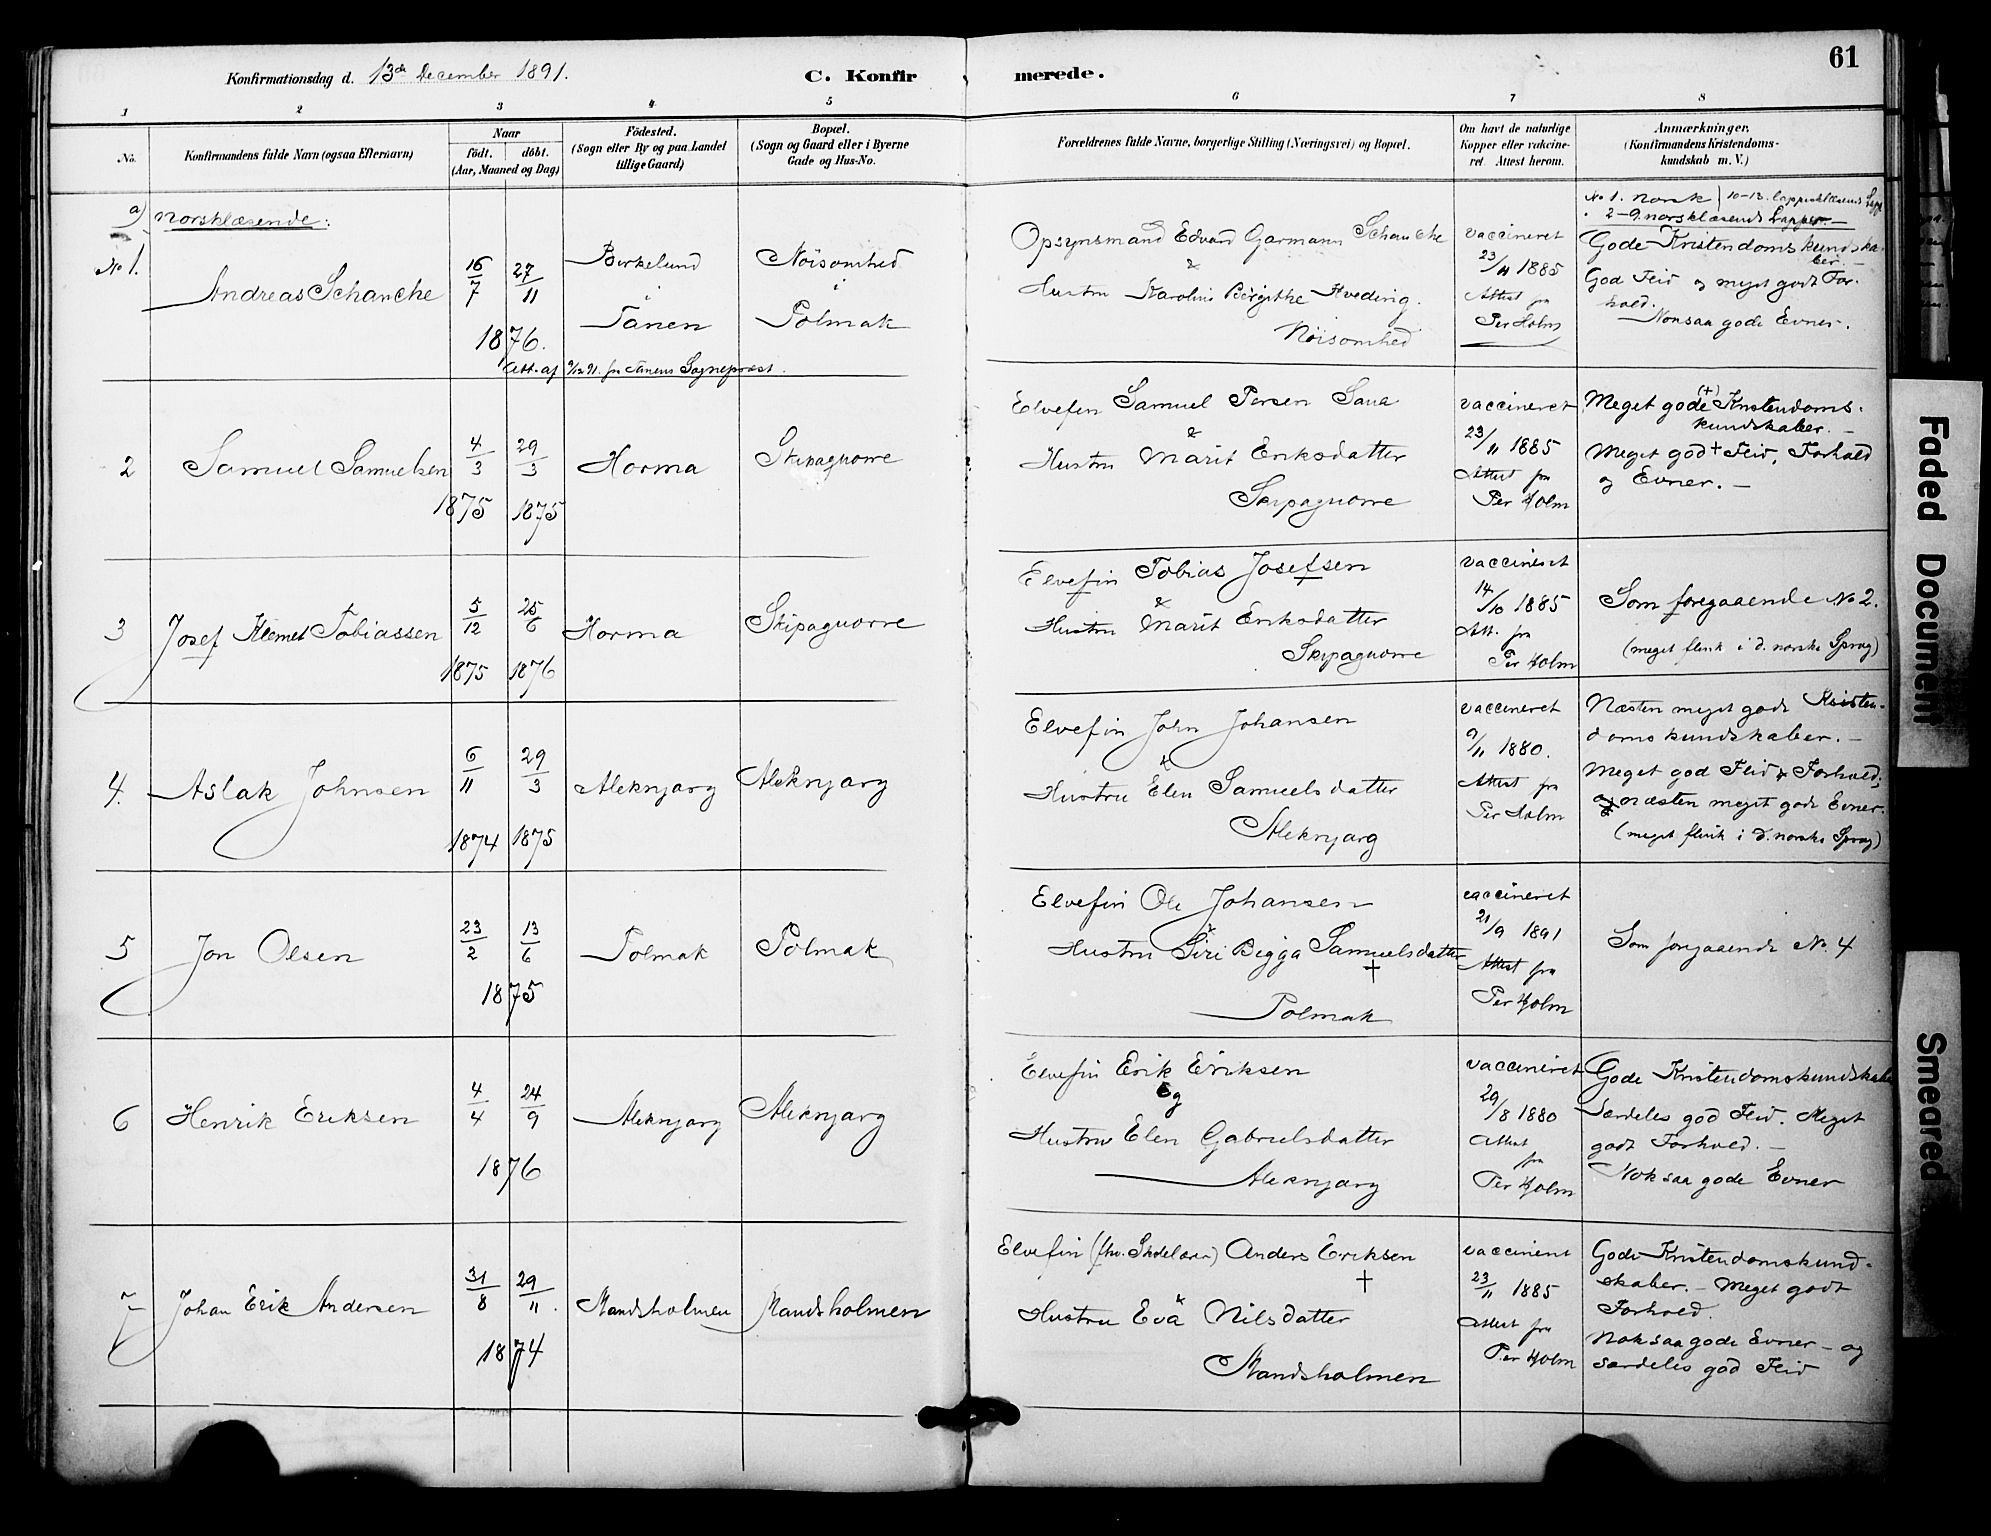 61
Konfirmationsdag d. 13de December 1891. C. Konfirmerede.
1 2 3 4 5 6 7 8
No. Konfirmandens fulde Navn (ogsaa Efternavn)
Naar født. døbt. (Aar, Maaned og Dag)
Födested. (Sogn eller By og paa Landet tillige Gaard)
Bopæl. (Sogn og Gaard eller i Byerne Gade og Hus-No.
Forældrenes fulde Navne, borgerlige Stilling (Næringsvei) og Bopæl.
Om havt de naturlige Kopper eller vakcineret. Attest herom.
Anmærkninger. (Konfirmandens Kristendomskundskab m. V.)
a) Norsklæsende:
No 1. norsk
2-9. norsklæsende Lapper. —
No 1.
Andreas Schancke
16/7 27/11
1876.
Birkelund
Tanen
Nöisomhed
Polmak
Att. af 9/12 91. fra Tanens Sognepræst.
Opsynsmand Edvard Garmann Schancke
&
Hustru Karoline Birgithe Kveding.
Nöisomhed
vaccineret
23/11 1885
Attest fra
Per Holm
Gode Kristendomskundskaber. —
God Flid og meget godt Forhold.
Noksaa gode Evner.
2
Samuel Samuelsen
4/3 29/3
1875 1875
Horma
Skipaguorre
Elvefin Samuel Persen Saua
&
Hustru Marit Eriksdatter
Skipaguorre
vaccineret
23/11 1885
Attest fra
Per Holm
Meget gode (+) Kristendomskundskaber. —
Meget god + Flid, Forhold
og Evner. —
3
Josef Klemet Tobiassen
5/12 25/6
1875 1876
Horma
Skipaguorre
Elvefin Tobias Josefsen
&
Hustru Marit Eriksdatter
Skipaguorre
vaccineret
14/10 1885
Att. fra
Per Holm
Som foregaaende No 2.
(meget flink i d. norske Sprog)
4.
Aslak Johnsen
6/11 29/3
1874 1875
Aleknjarg
Aleknjarg
Elvefin John Johansen
&
Hustru Elen Samuelsdatter
Aleknjarg
vaccineret
9/11 1880.
Attest fra
Per Holm
Næsten meget gode Kristendomskundskaber. —
Meget god Flid & Forhold;
næsten meget gode Evner.
(meget flink i d. norske Sprog)
5
Jon Olsen
23/2 13/6
1875
Polmak
Polmak
Elvefin Ole Johansen
&
Hustru Siri Bigga Samuelsdatter
+
Polmak
vaccineret
21/9 1891
Attest fra
Per Holm
Som foregaaende No. 4
6
Henrik Eriksen
4/4 24/9
1876
Aleknjarg
Aleknjarg
Elvefin Erik Eriksen
og
Hustru Elen Gabrielsdatter
Aleknjarg
vaccineret
29/8 1880
Attest
fra
Per Holm
Gode Kristendomskundskaber
Særdeles god Flid. Meget
godt Forhold. —
Noksaa gode Evner
7
Johan Erik Andersen
31/8 29/11.
1874
Mandsholmen
Mandsholmen
Elvefin (fhv. Skolelærer) Anders Eriksen
+
&
Hustru Eva Nilsdatter
Mandsholmen
vaccineret
23/11 1885
Attest fra
Per Holm
Gode Kristendomskundskaber. — Meget godt
Forhold.
Noksaa gode Evner — og
særdeles god Flid
Faded Document
Smeared